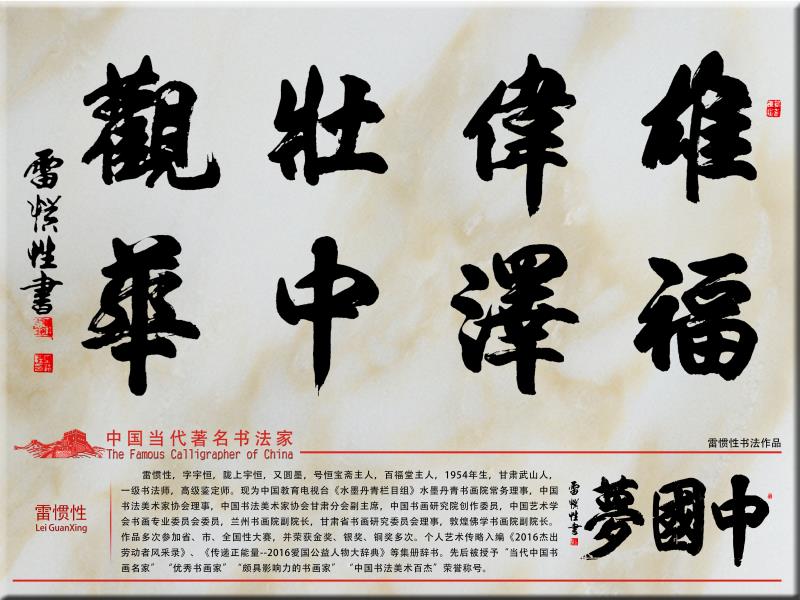 雄偉壯觀
福澤中華
雷惯性書
中国当代著名书法家
The Famous Calligrapher of China
雷惯性书法作品
雷惯性
Lei GuanXing
雷惯性，字宇恒，陇上宇恒，又圆墨，号恒宝斋主人，百福堂主人，1954年生，甘肃武山人，
一级书法师，高级鉴定师。现为中国教育电视台《水墨丹青栏目组》水墨丹青书画院常务理事，中国
书法美术家协会理事，中国书法美术家协会甘肃分会副主席，中国书画研究院创作委员，中国艺术学
会书画专业委员会委员，兰州书画院副院长，甘肃省书画研究委员会理事，敦煌佛学书画院副院长。
作品多次参加省、市、全国性大赛，并荣获金奖、银奖、铜奖多次。个人艺术传略入编《2016杰出
劳动者风采录》、《传递正能量--2016爱国公益人物大辞典》等集册辞书。先后被授予“当代中国书
画名家” “优秀书画家” “颇具影响力的书画家” “中国书法美术百杰”荣誉称号。
中國夢
雷惯性書